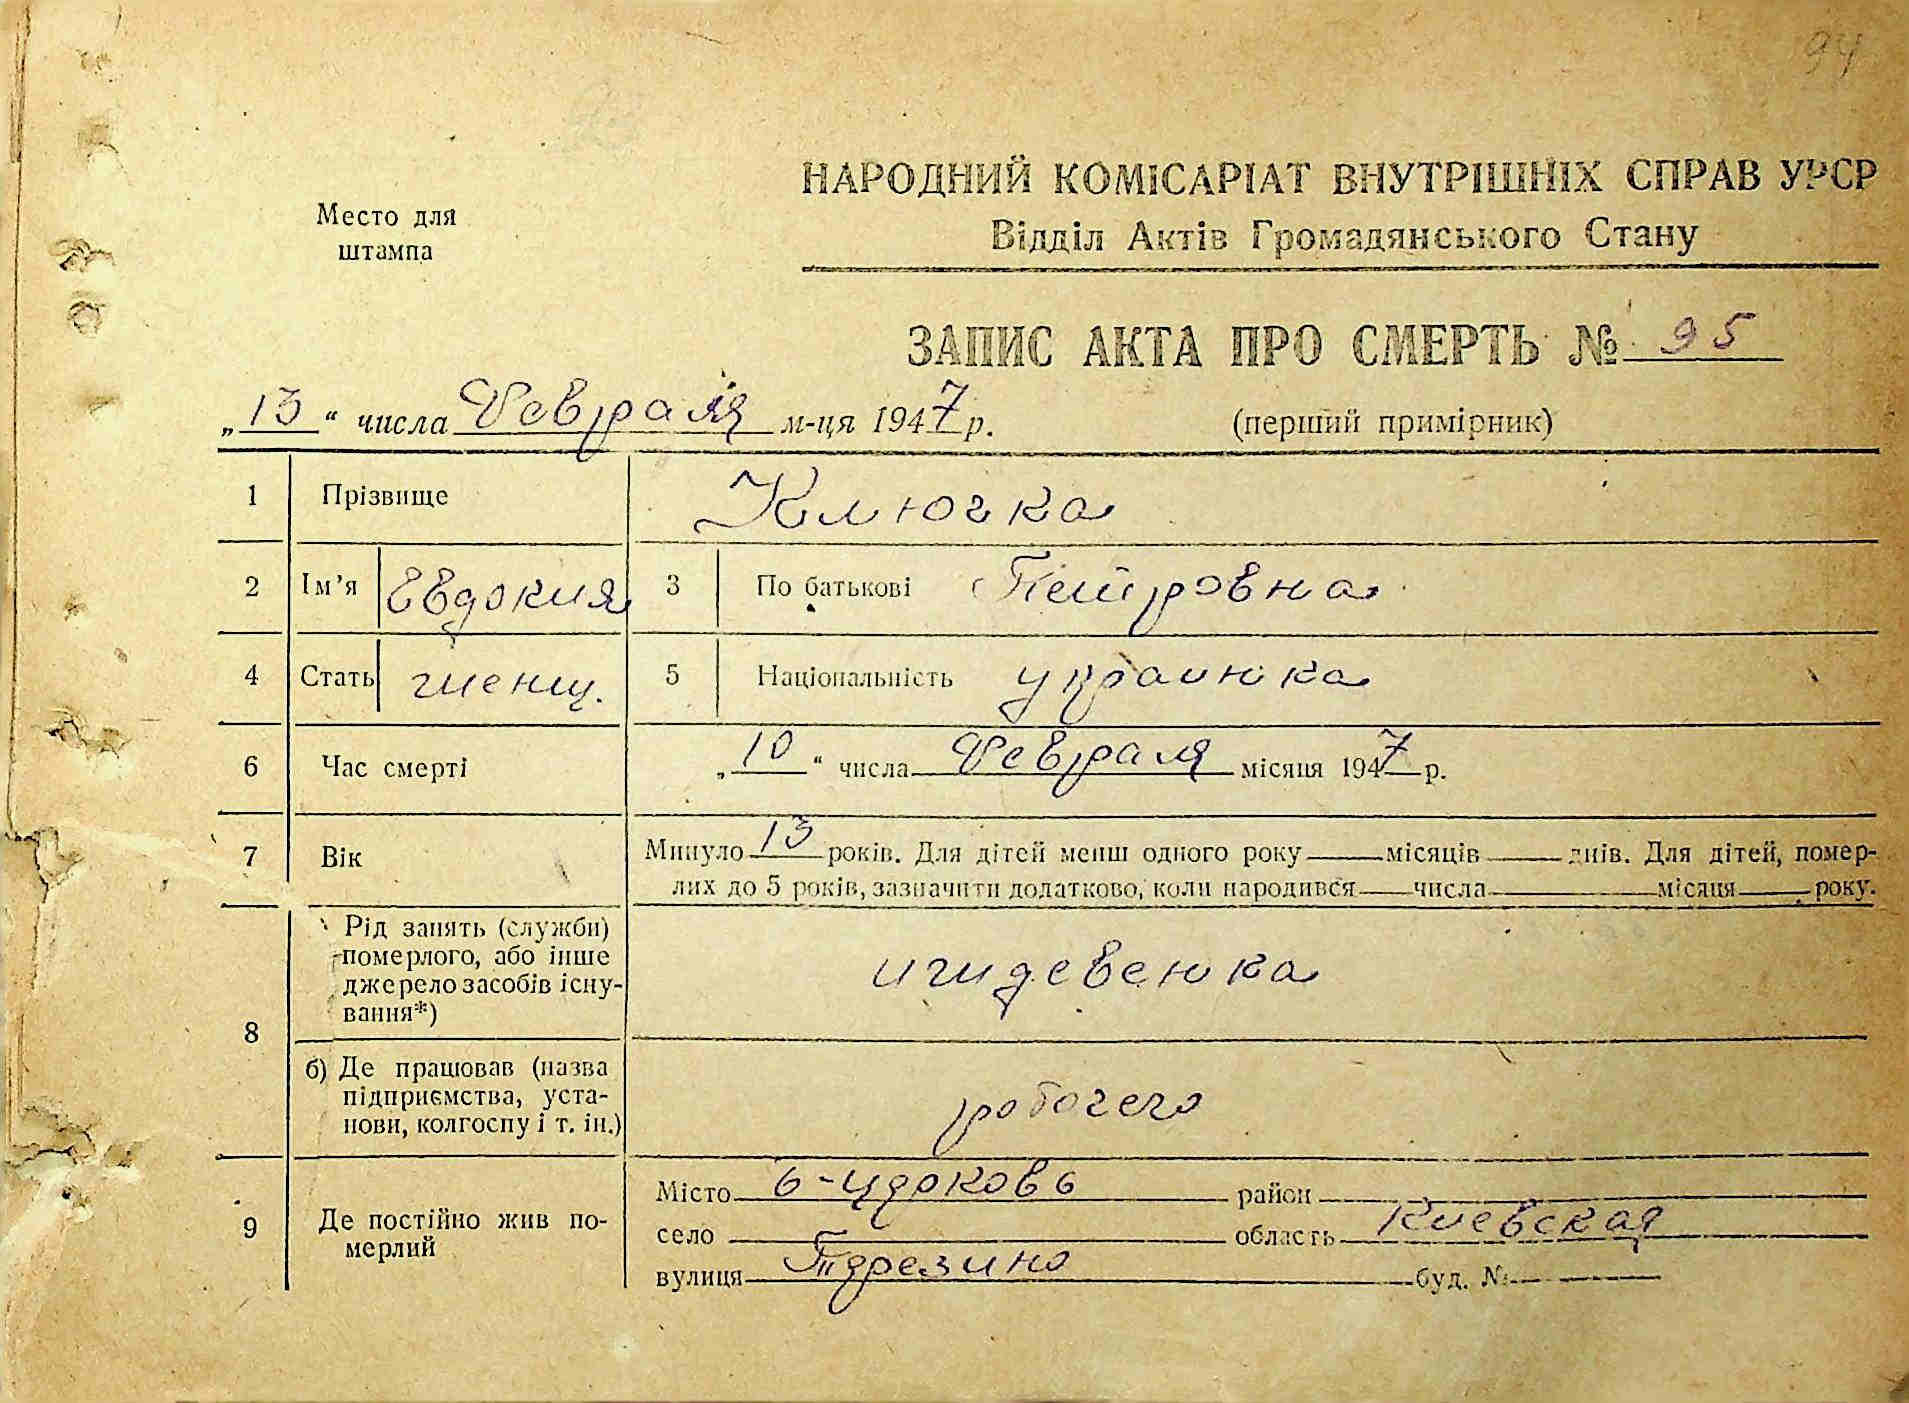 94
Место для
штампа
НАРОДНИЙ КОМІСАРІАТ ВНУТРІШНІХ СПРАВ УРСР
Відділ Актів Громадянського Стану
ЗАПИС АКТА ПРО СМЕРТЬ № 95
„13“ числа Февраля м-ця 1947 р. (перший примірник)
1 Прізвище Ключка
2 Ім’я Евдокия 3 По батькові Петровна
4 Стать женщ. 5 Національність украинка
6 Час смерті „10“ числа Февраля місяця 1947 р.
7 Вік Минуло 13 років. Для дітей менш одного року місяців днів. Для дітей, помер-
лих до 5 років, зазначити додатково, коли народився числа місяця року.
8 Рід занять (служби)
померлого, або інше
джерело засобів існу-
вання*)
иждевенка
б) Де працював (назва
підприємства, уста-
нови, колгоспу і т. ін.)
рабочего
9 Де постійно жив по-
мерлий
Місто район
село область Киевская
вулиця буд. №